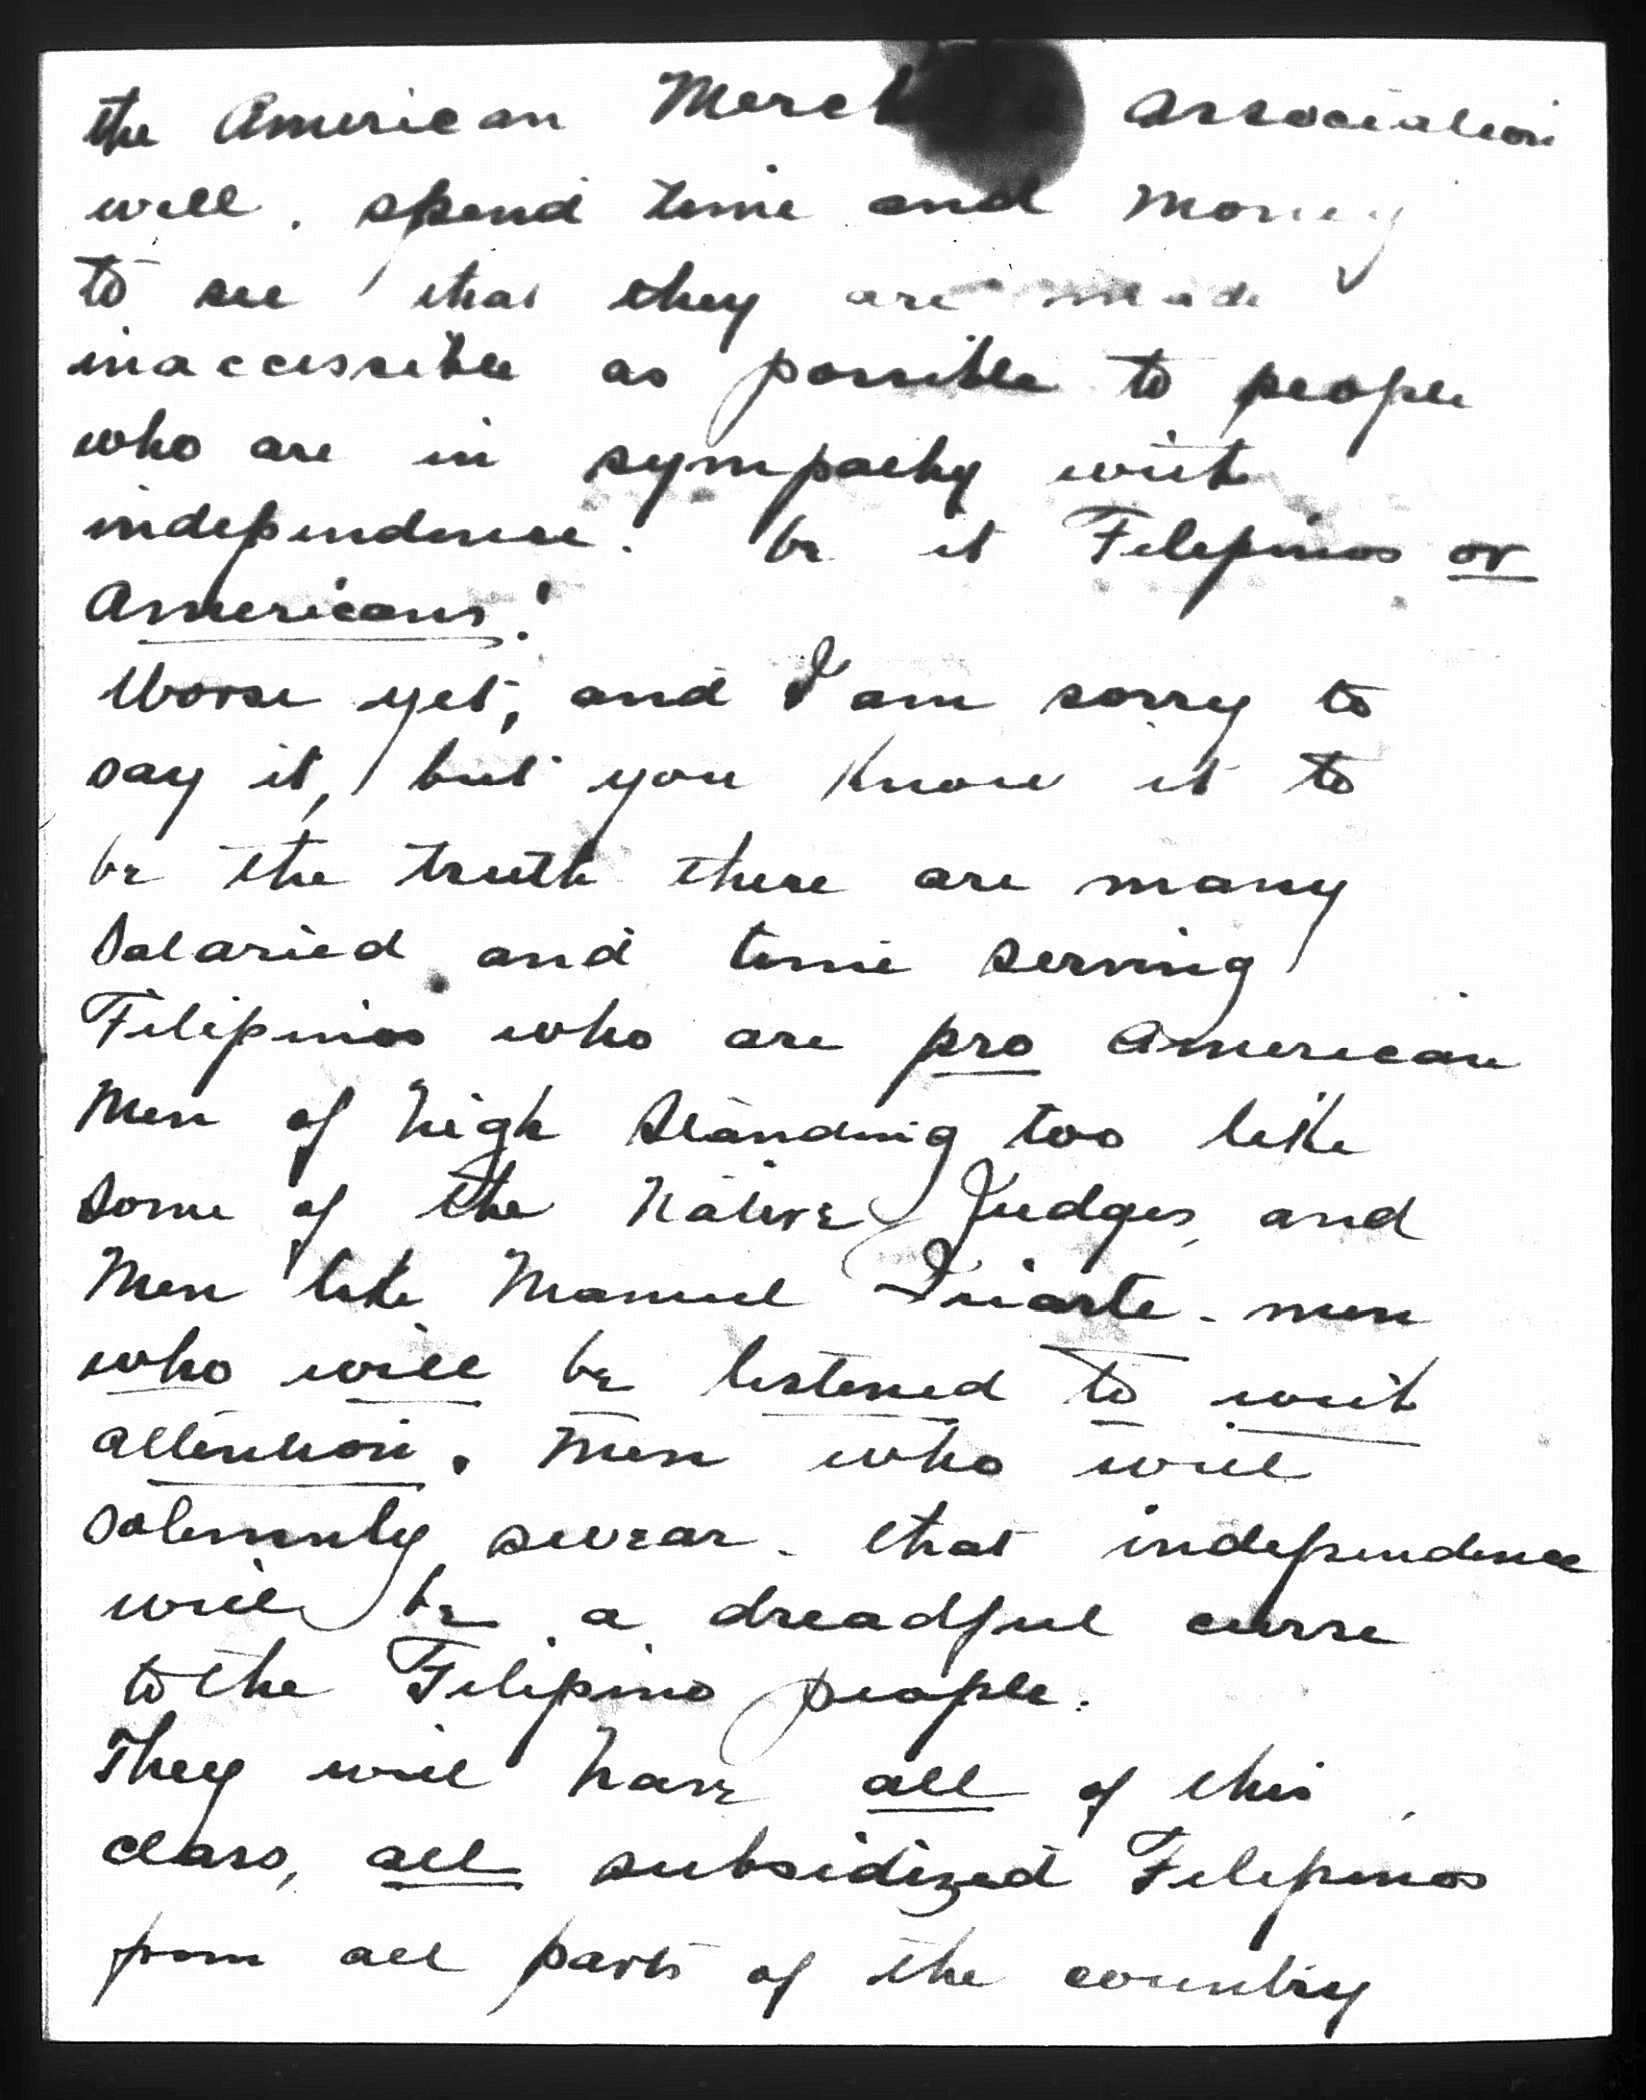 the American Association
will. spend time and money
to see that they are made
inaccessible as possible to people
who are in sympathy with
independence. be it Filipinos or
Americans!
Worse yet, and I am sorry to
say it, but you know it to
be the truth there are many
salaried and time serving
Filipinos who are pro American
Men of high standing too like
some of the Native Judges, and
Men like Manuel Iriarte - men
who will be listened to with
attention. Men who will
solemnly swear - that independence
will be a dreadful curse
to the Filipino people.
They will have all of this
class, all subsidized Filipinos
from all parts of the country